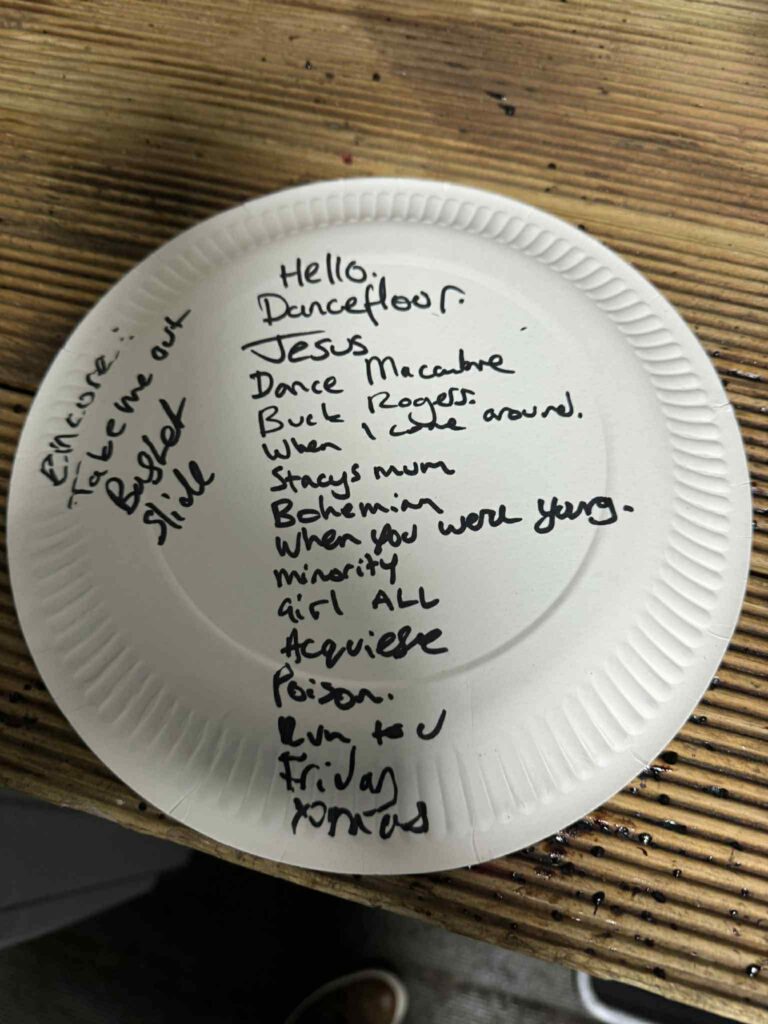 Hello.
Dancefloor.
Jesus
Dance Macabre
Buck Rogers.
When I come around.
Stacys mum
Bohemian
When you were young.
minority
Girl ALL
Acquiese
Poison.
Run to U
Friday
Xmas
Encore:
Take me out
Basket
Slide